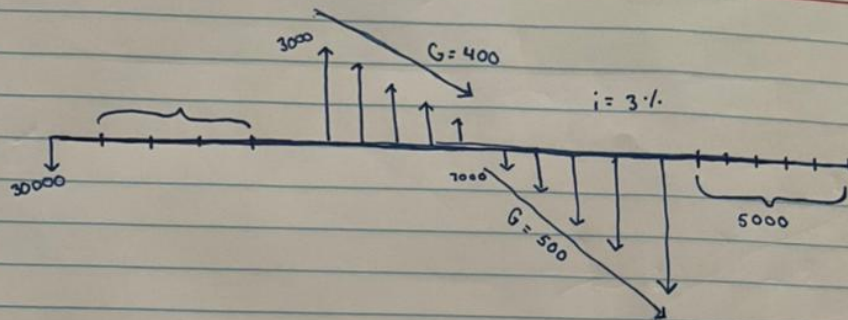 3000
G = 400
i = 3 %
30000
7000
G = 500
5000